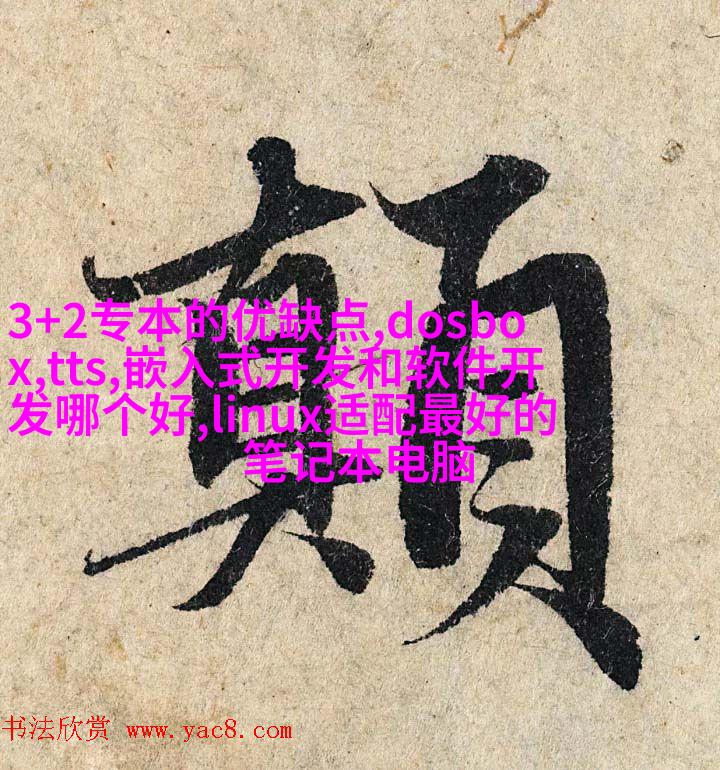 顛
3+2专本的优缺点,dosbo
x,tts,嵌入式开发和软件开
发哪个好,linux适配最好的
笔记本电脑
书法欣赏 www.yac8.com